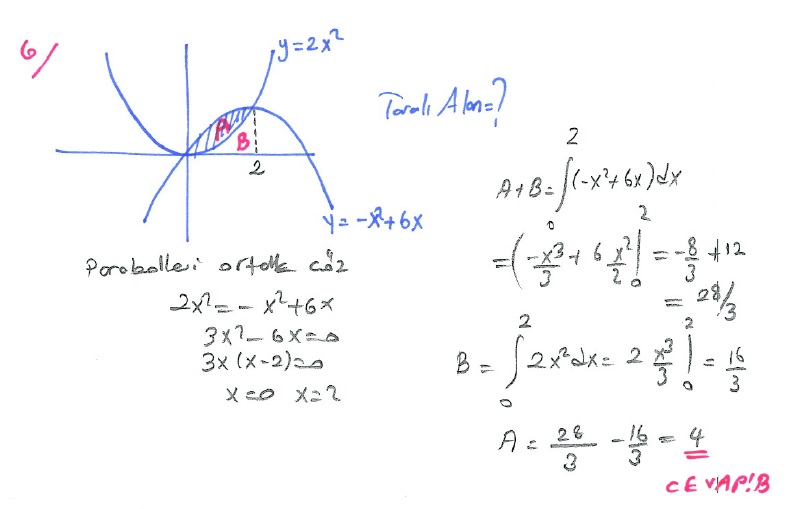 6/
y=2x²
A
B
2
y=-x²+6x
Taralı Alan=?
Parabolleri ortak çöz
2x²=-x²+6x
3x²-6x=0
3x(x-2)=0
x=0 x=2
A+B=∫₀²(-x²+6x)dx
=(-x³/3+6x²/2|₀²=-8/3+12
=28/3
B=∫₀²2x²dx=2x³/3|₀²=16/3
A=28/3-16/3=4
CEVAP!B